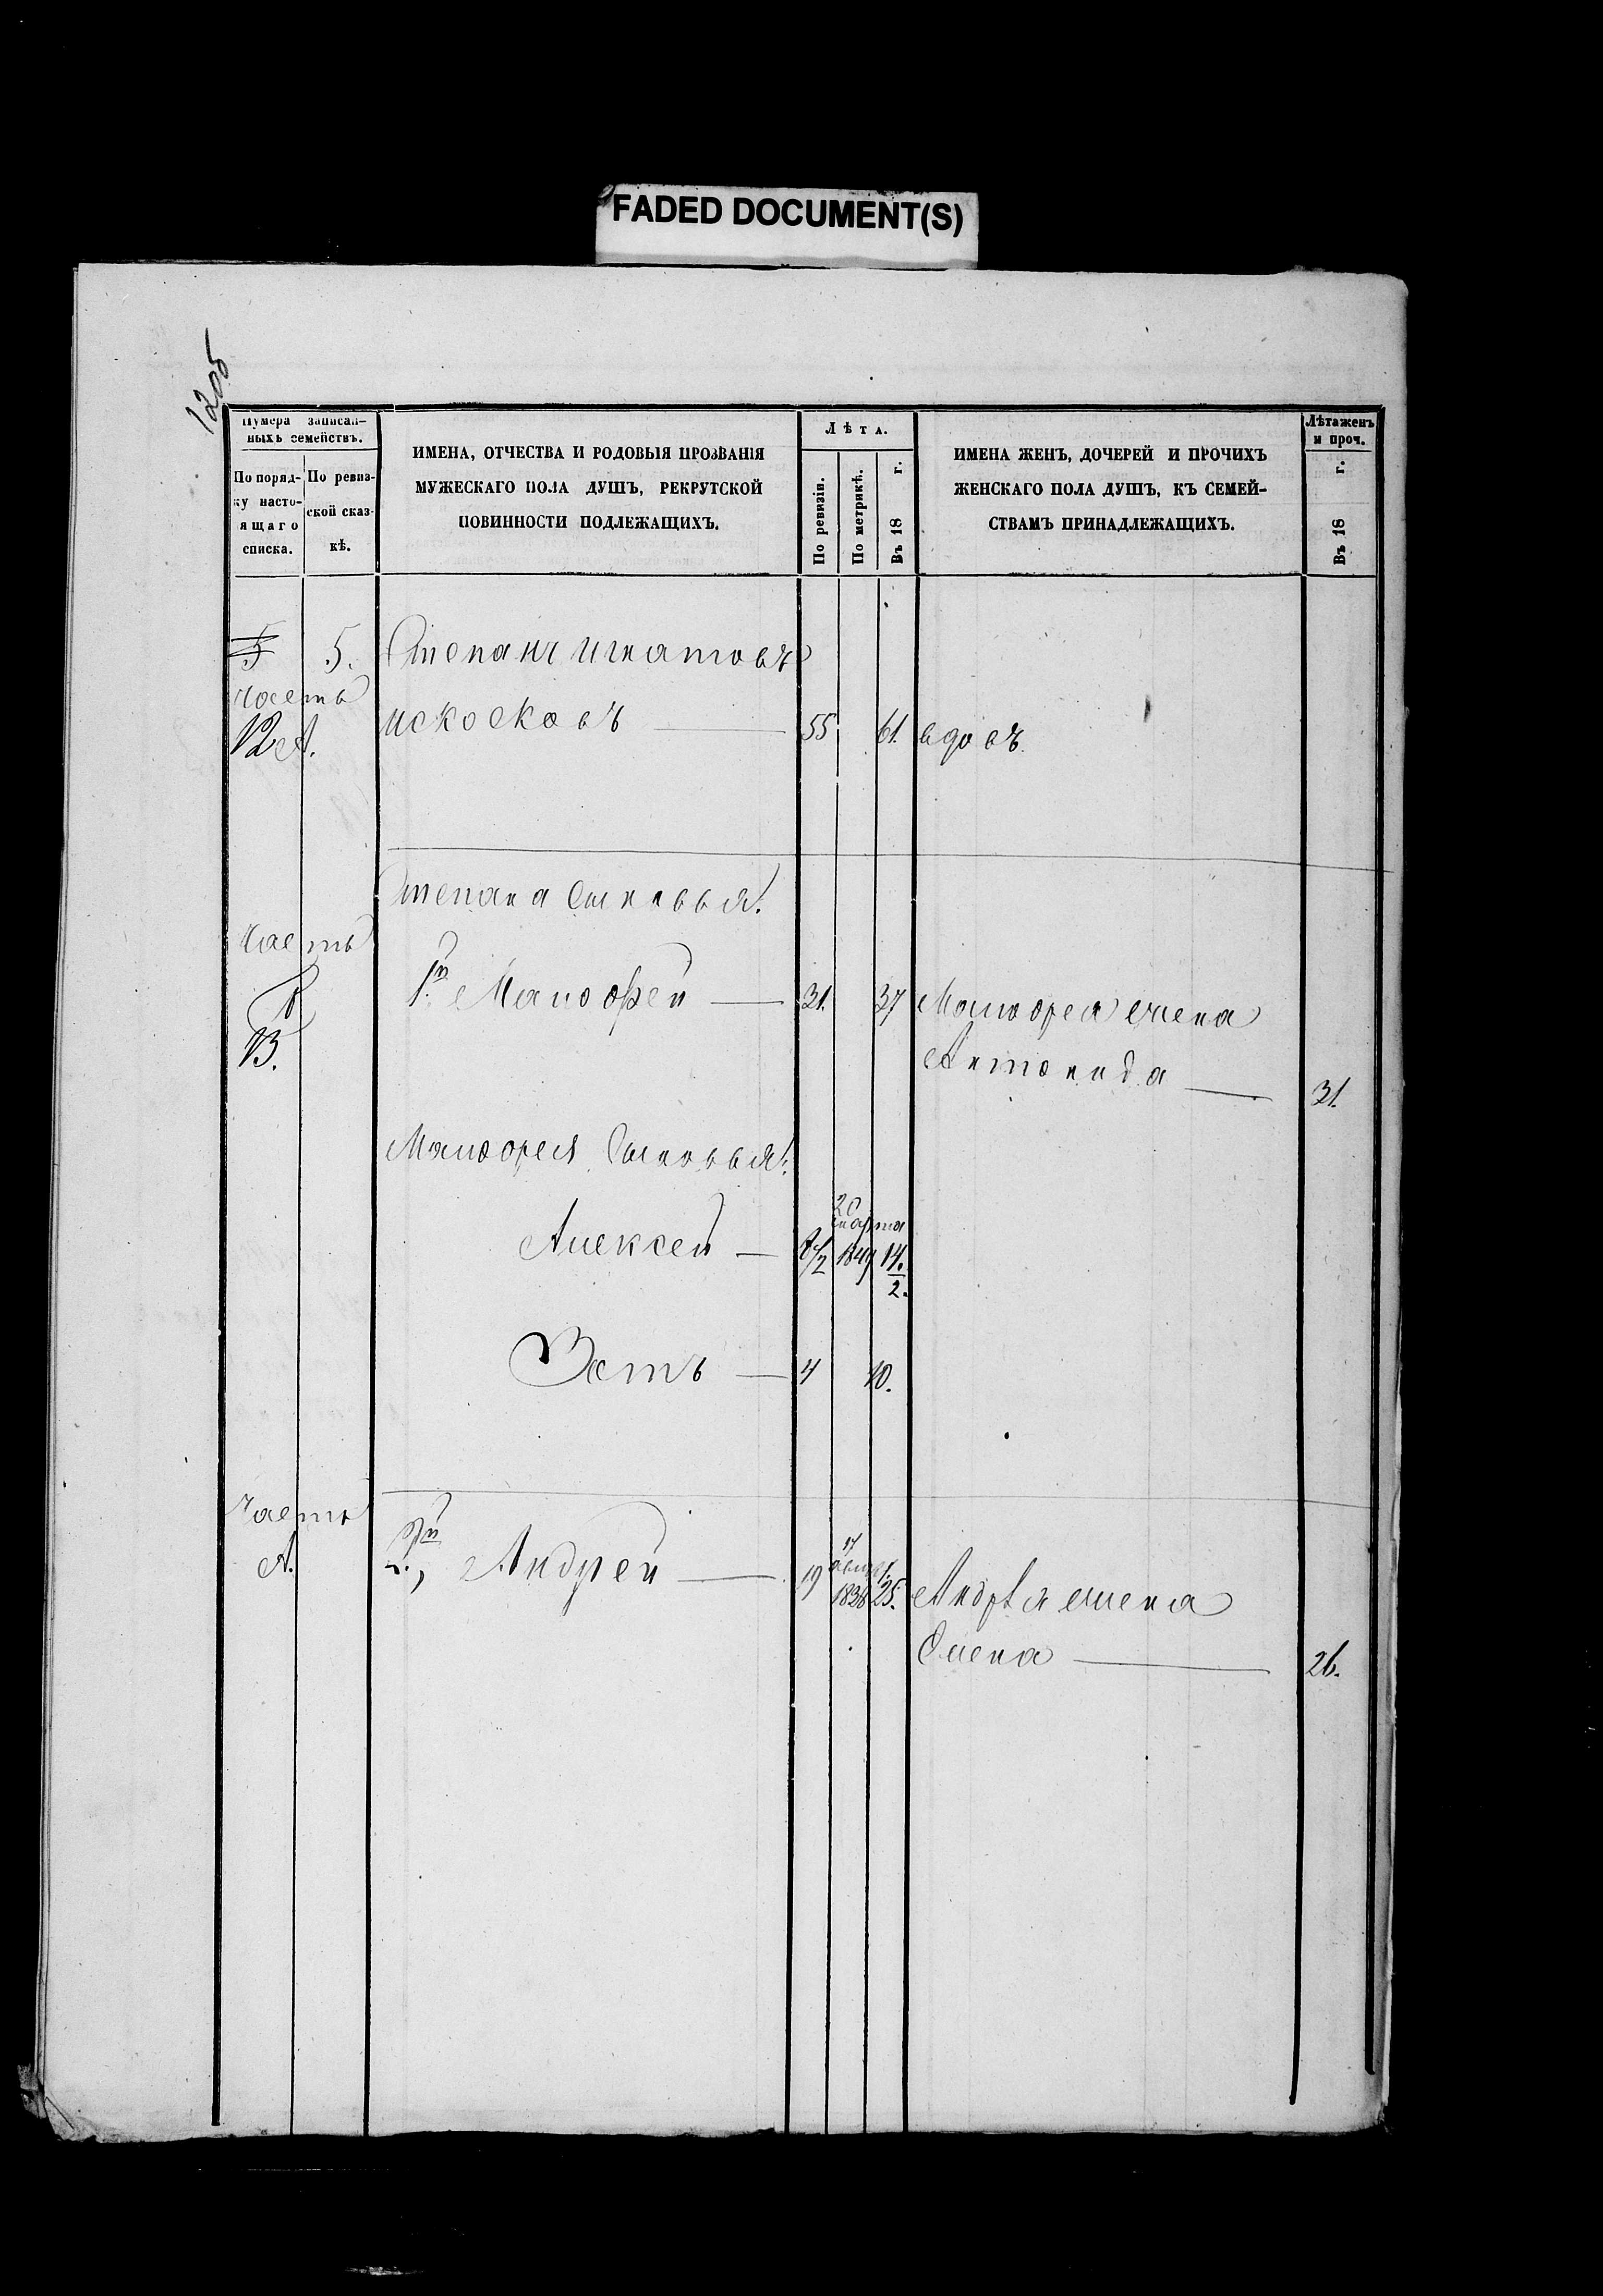 FADED DOCUMENT(S)
1205
Нумера записан-
ныхъ семействъ.
По поряд-
ку насто-
ящаго
списка.
По ревиз-
ской сказ-
кѣ.
ИМЕНА, ОТЧЕСТВА И РОДОВЫЯ ПРОЗВАНІЯ
МУЖЕСКАГО ПОЛА ДУШЪ, РЕКРУТСКОЙ
ПОВИННОСТИ ПОДЛЕЖАЩИХЪ.
Лѣта.
По ревизіи.
По метрикѣ.
Въ 18 г.
ИМЕНА ЖЕНЪ, ДОЧЕРЕЙ И ПРОЧИХЪ
ЖЕНСКАГО ПОЛА ДУШЪ, КЪ СЕМЕЙ-
СТВАМЪ ПРИНАДЛЕЖАЩИХЪ.
Лѣта женъ
и проч.
Въ 18 г.
5 5. Степанъ Игнатовъ
часть
12 А. Искосковъ 55 61. вдовъ.
Степана Сыновья:
часть
1й Мапофей 31. 37 Мапофея жена
В.
Антонида 31.
Мапофея Сыновья:
20
марта
Алексей 8 1/2 1849 14.
2.
Зотъ 4 10.
часть
А. 2., Андрей 19 17 1836 25. Андрѣя жена
Елена 26.